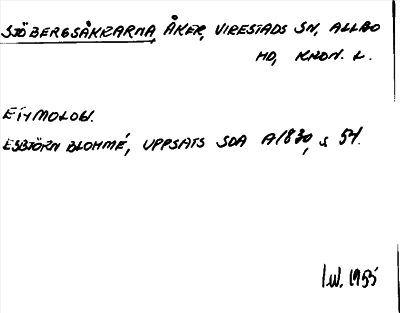 SJÖBERGSÅKRARNA, ÅKER, VIRESTADS SN, ALLBO
HD, KRON. L.
ETYMOLOGI.
ESBJÖRN BLOHMÉ, UPPSATS SDA A1830, s 54.
I.W. 1955